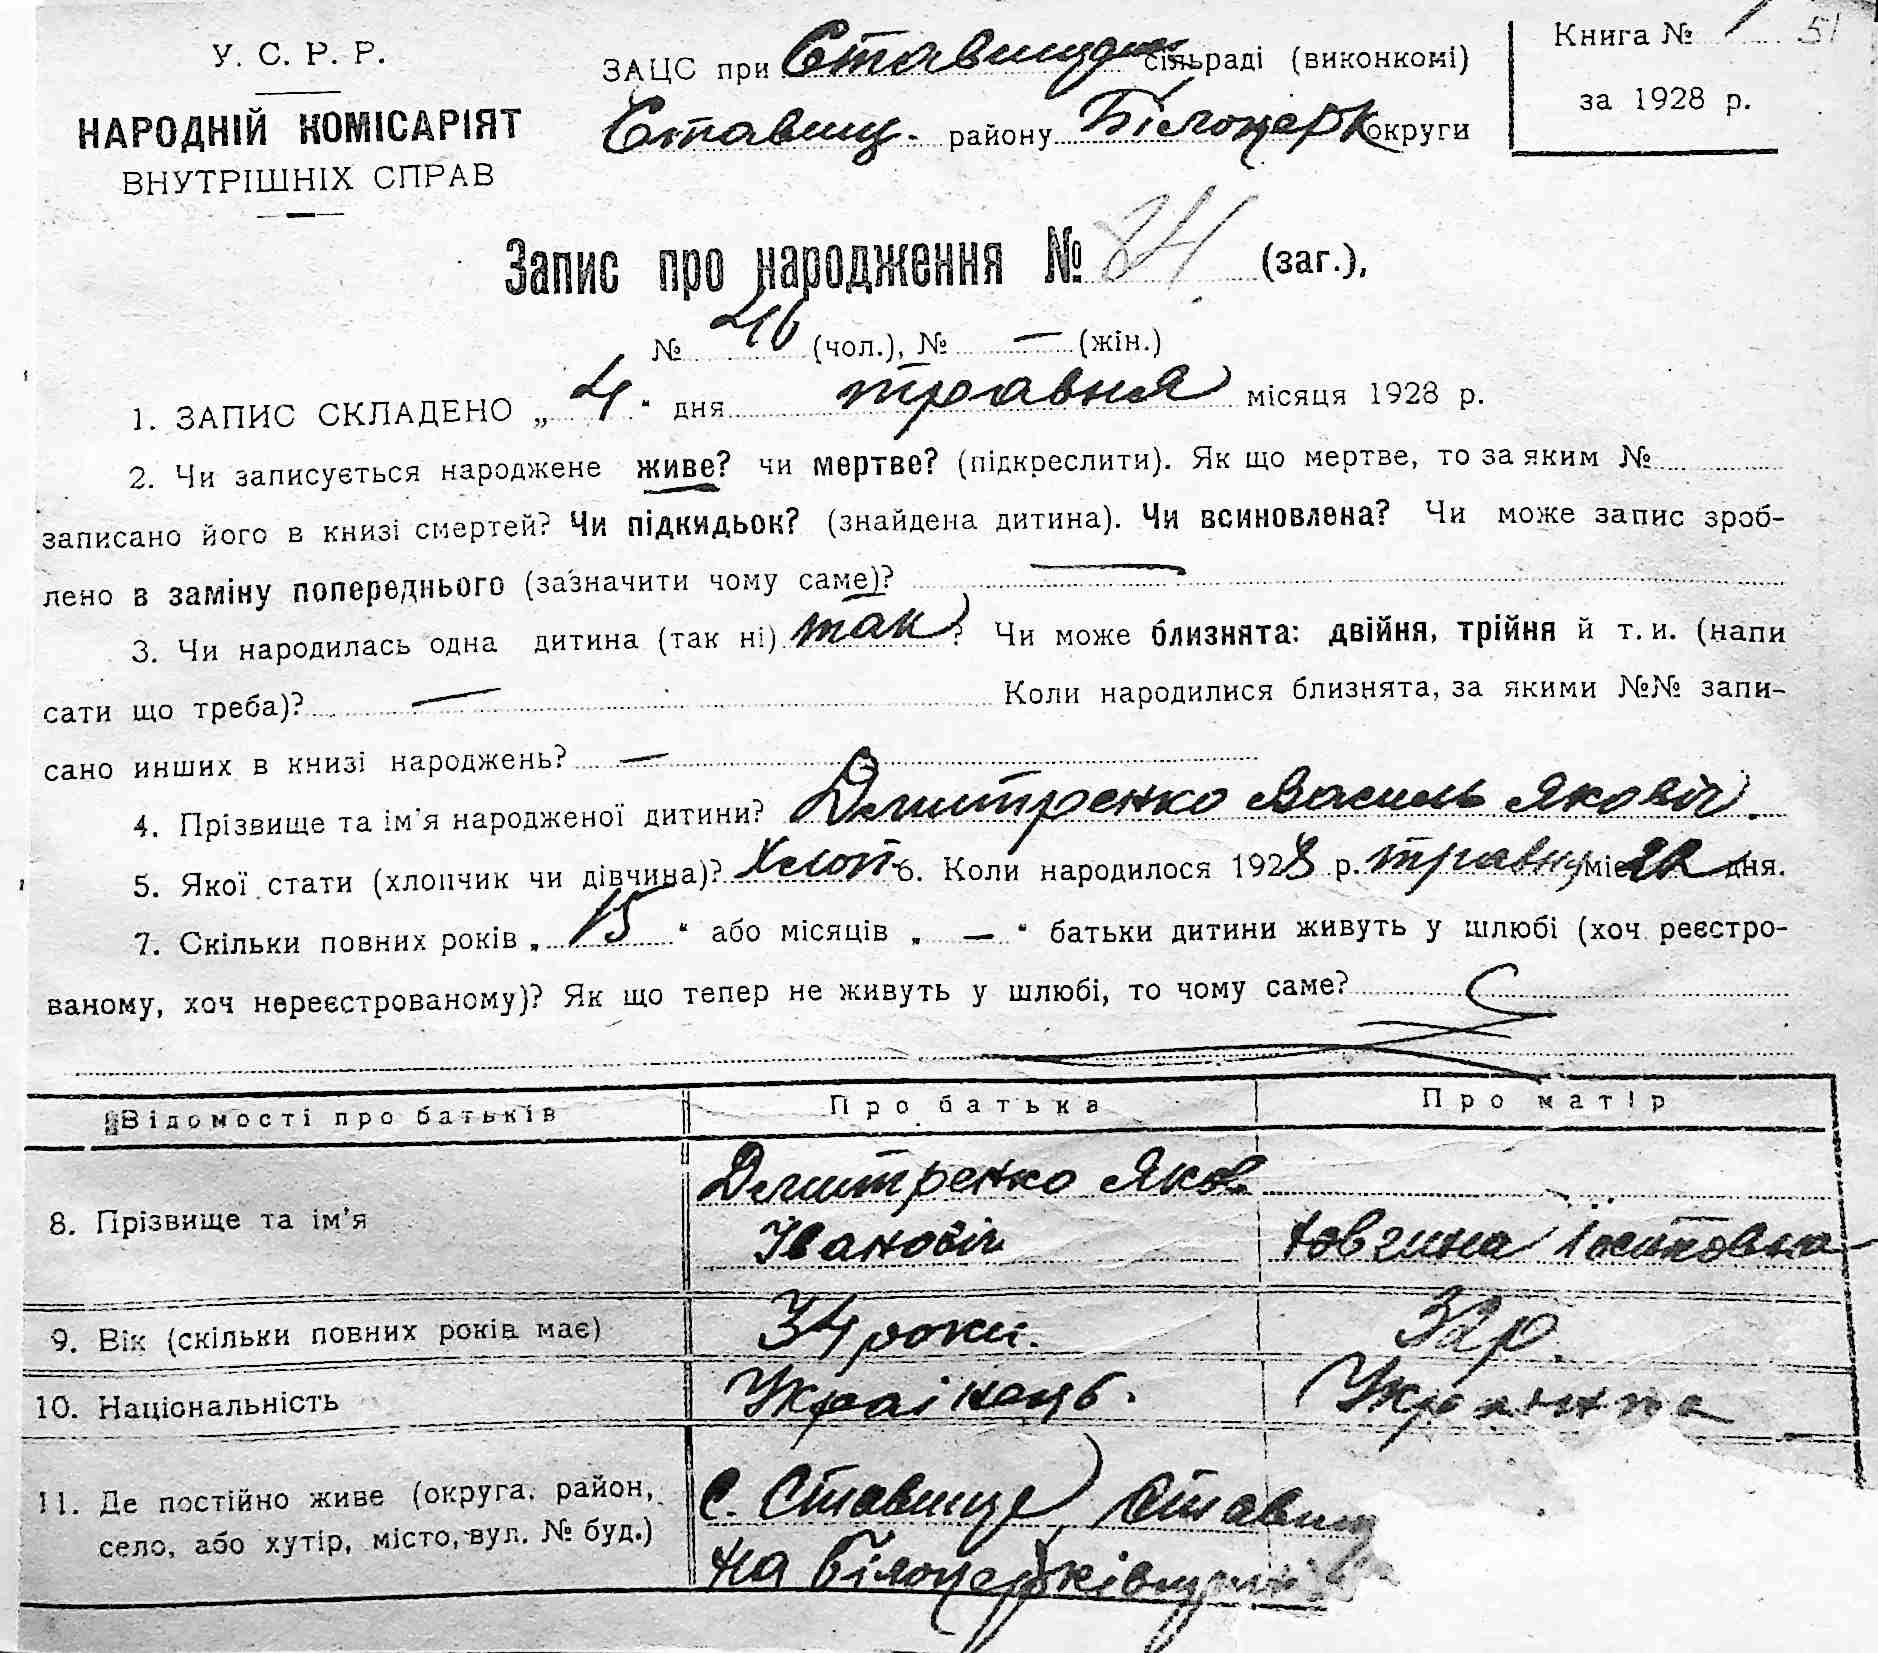 У. С. Р. Р.
НАРОДНІЙ КОМІСАРІЯТ
ВНУТРІШНІХ СПРАВ
ЗАЦС при сільраді (виконкомі)
Ставищ. району Білоцерк округи
Книга № 1 51
за 1928 р.
Запис про народження № 84 (заг.),
№ 46 (чол.), № — (жін.)
1. ЗАПИС СКЛАДЕНО „ 4 " дня травня місяця 1928 р.
2. Чи записується народжене живе? чи мертве? (підкреслити). Як що мертве, то за яким №
записано його в книзі смертей? Чи підкидьок? (знайдена дитина). Чи всиновлена? Чи може запис зроб-
лено в заміну попереднього (зазначити чому саме)? —
3. Чи народилась одна дитина (так ні) так ? Чи може близнята: двійня, трійня й т. и. (напи
сати що треба)? — Коли народилися близнята, за якими №№ запи-
сано инших в книзі народжень? —
4. Прізвище та ім'я народженої дитини? Дмитренко Василь Яковіч.
5. Якої стати (хлопчик чи дівчина)? Хлоп 6. Коли народилося 1928 р. травн міс дня.
7. Скільки повних років „ 15 " або місяців „ — " батьки дитини живуть у шлюбі (хоч реєстро-
ваному, хоч нереєстрованому)? Як що тепер не живуть у шлюбі, то чому саме?
Відомості про батьків Про батька Про матір
8. Прізвище та ім'я Дмитренко Яков
Іановіч
9. Вік (скільки повних років має) 34 роки. 32 р.
10. Національність Українець. Украинка
11. Де постійно живе (округа, район,
село, або хутір, місто, вул. № буд.)
с. Ставище Ставищ
на Білоцерківщині